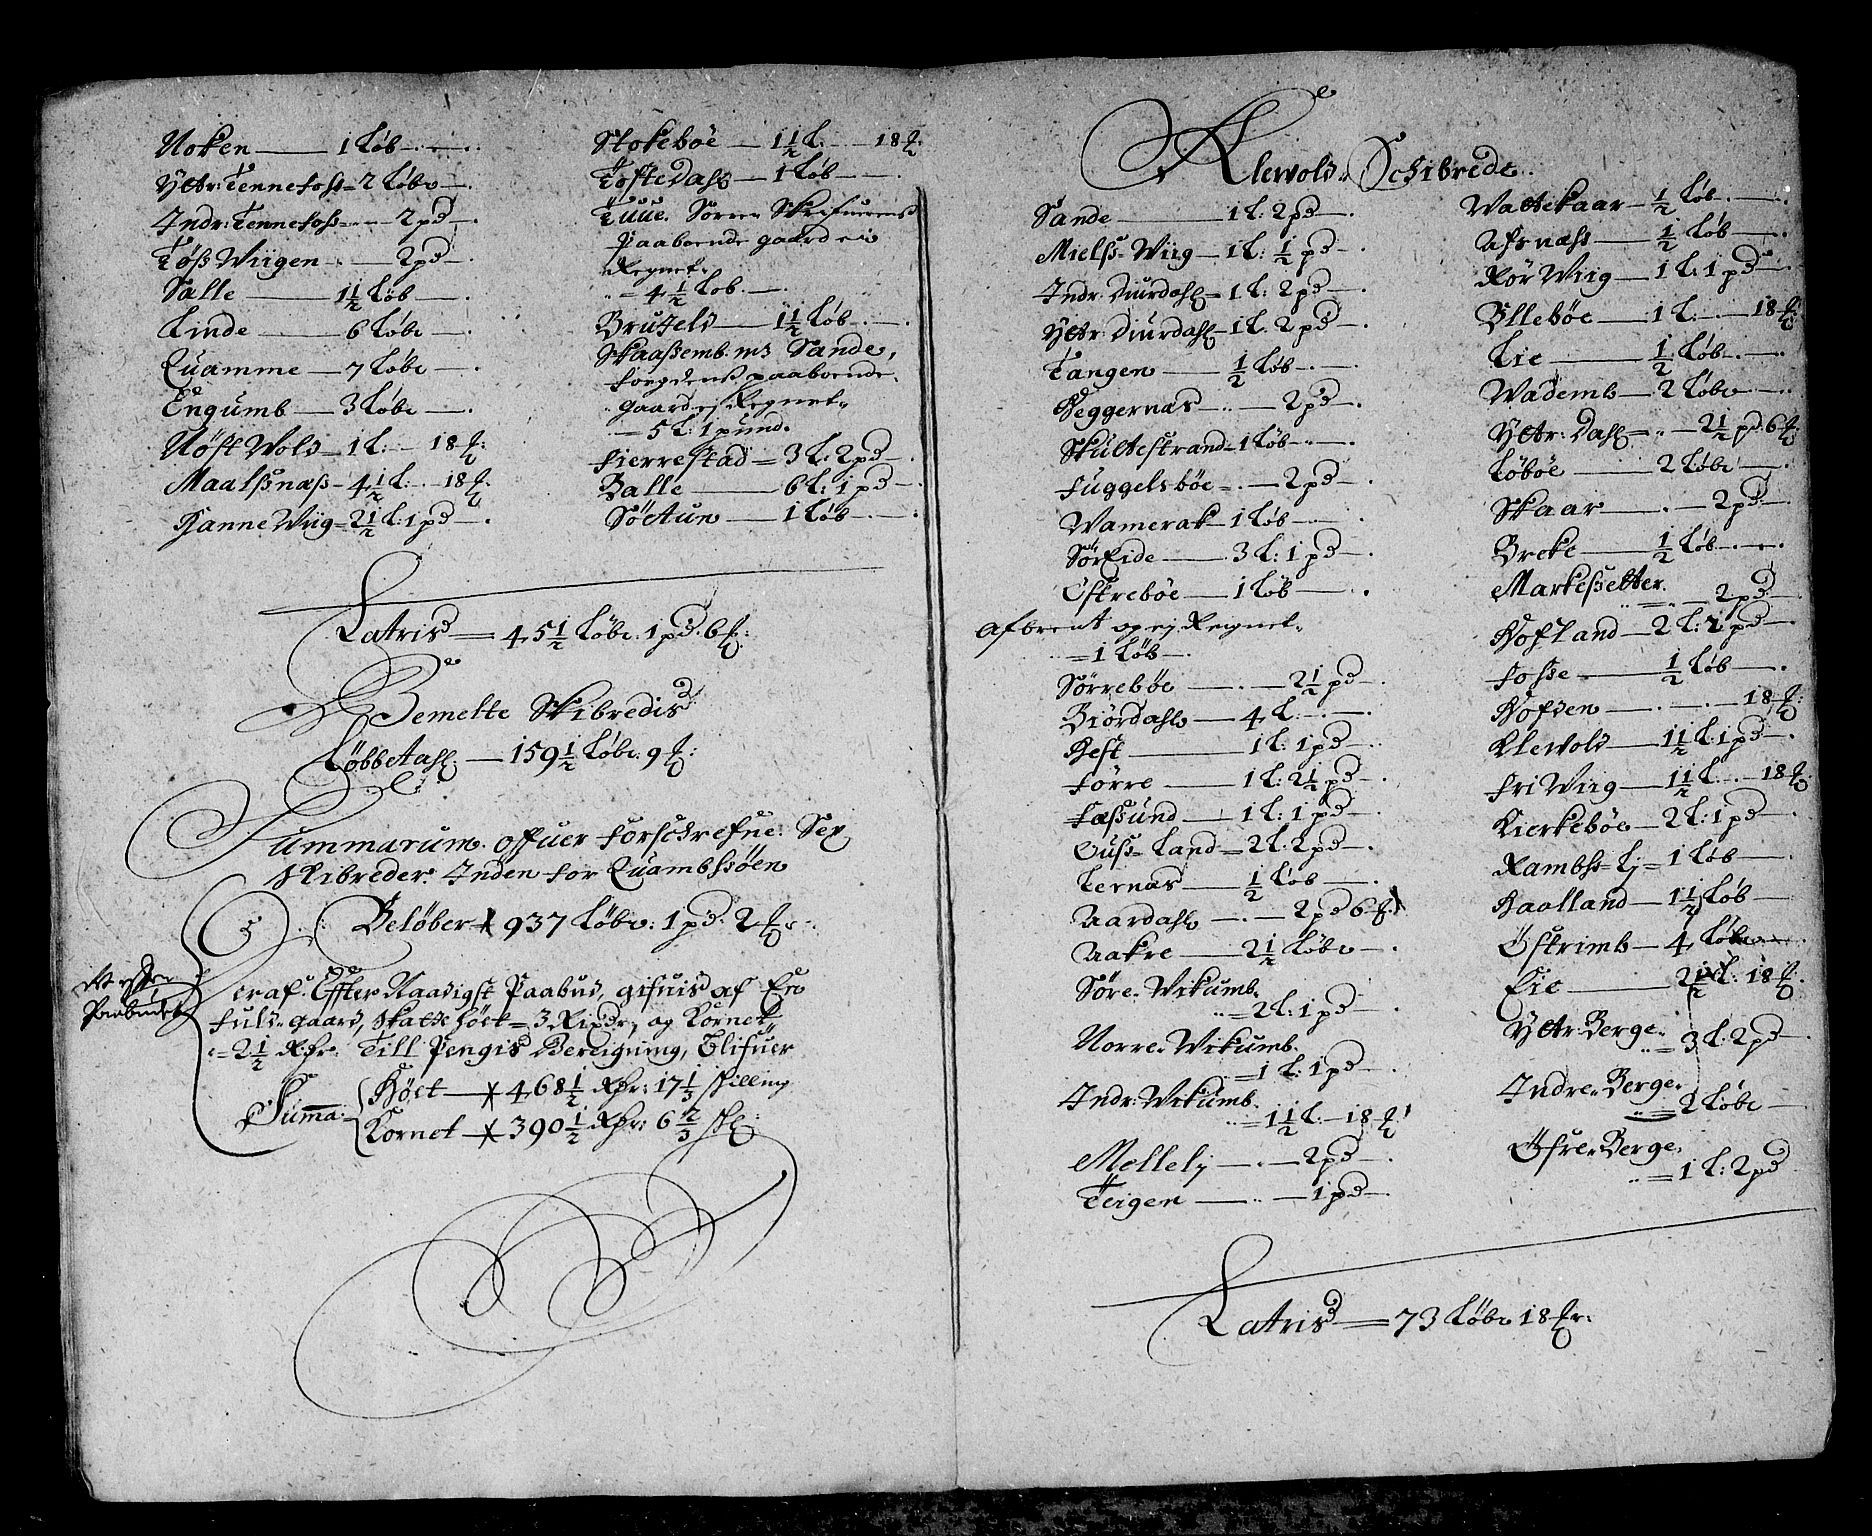 Noken — 1 Løb
Yttr: Tennefoss — 2 Løbe
Indr: Tennefoss — 2 pd
Løss Wiigen — 2 pd
Salle — 1 1/2 Løb
Linde — 6 Løbe
Quamme — 7 Løbe
Engumb — 3 Løbe
Nøst Wold — 1 L: 18
Maalssnæss — 4 1/2 L: 18
Hanne Wiig = 2 1/2 L: 1 pd
Stokebøe — 1 1/2 L: 18
Toftedahl — 1 Løb
Tuue. Soren Skrifuerens
Paaboende gaard ei
Regnet.
= 4 1/2 Løb
Bruteld — 1 1/2 Løb
Skaassemb. mz Sande,
foegdens paaboende
gaard ej Regnet
— 5 L: 1 pund.
Fierrestad = 3 L: 2 pd
Balle — 6 L: 1 pd
Søetun — 1 Løb
Latris = 45 1/2 Løbe. 1 pd. 6
Bemelte Skibredis
Løbbetahl — 159 1/2 Løbe. 9
Summarum offuer forschrefne Sex
Skibreder Inden for Quambssøen
Beløber 937 Løbe: 1 pd. 2
Effter
Paabudet
eraf Effter Naadigst Paabud, gifuis af En
fuld gaard, Skatte Høet = 3 Rixdr, og Kornet
= 2 1/2 Rdr. Till Pengis Bereigning, Blifuer
Suma
Høet — 468 1/2 Rdr: 17 1/3 skilling
Kornet — 390 1/2 Rdr: 6 2/3
Klewold Schibrede
Sande — 1 L: 2 pd
Mielss Wiig — 1 L: 1/2 pd
Indr: Diurdahl = 1 L: 2 pd
Yttr: Diurdahl — 1 L. 2 pd
Tangen — 1/2 Løb
Heggernæs — 2 pd
Skultestrand = 1 Løb
Fuggelsbøe — 2 pd
Wamerak — 1 Løb
Sør Eide — 3 L: 1 pd
Østrebøe — 1 Løb
Afbrent og ej Regnet
= 1 Løb
Sørrebøe — 2 1/2 pd
Biördahl — 4 L:
Hest — 1 L: 1 pd
Förre — 1 L: 2 1/2 pd
Fæssund — 1 L: 1 pd
Guss Land = 2 L. 2 pd
Lernæs — 1/2 Løb
Aardahl — 2 pd 6
Aakre — 2 1/2 Løbe
Søre Wikumb.
= 2 L: 1 pd
Norre Wikumb.
= 1 L: 1 pd
Indr: Wikumb.
= 1 1/2 L — 18
Mollelj — 2 pd
Teigen — 1 pd
Wattekaar — 1/2 Løb
Afsnæss — 1/2 Løb
Rör Wiig — 1 L: 1 pd
Ollebøe — 1 L: 18
Lie — 1/2 Løb
Wademb — 2 Løbe
Yttr: Dahl = 2 1/2 pd. 6
Løbøe — 2 Løbe
Skaar — 2 pd
Breke — 1/2 Løb
Markessetter.
= 2 pd
Hofland — 2 L: 2 pd
Fosse — 1/2 Løb
Hofden — 18
Klewold — 1 1/2 L: 1 pd
Fri Wiig — 1 1/2 L: 18
Kierkebøe — 2 L: 1 pd
Rambss Lj = 1 Løb
Haalland — 1 1/2 Løb
Østrimb — 4 Løbe
Eie — 2 1/2 L: 18
Yttr: Berge
= 3 L. 2 pd
Indre Berge
= 2 Løbe
Øfre Berge
= 1 L: 2 pd
Latris = 73 Løbe 18